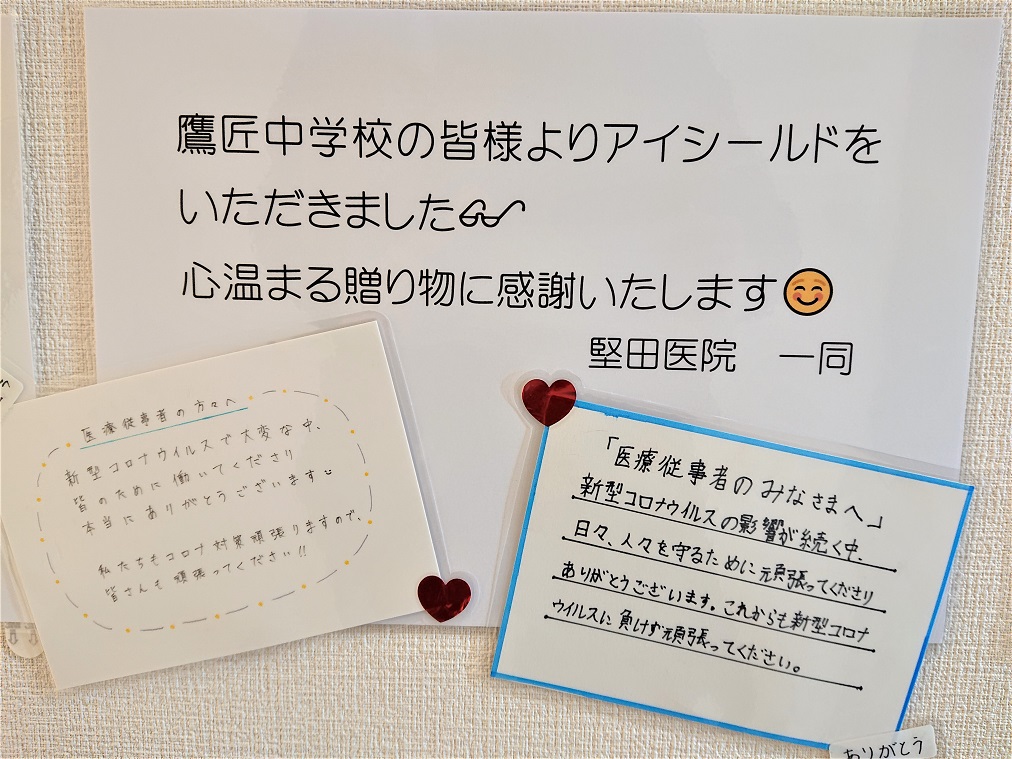 鷹匠中学校の皆様よりアイシールドを
いただきました👓
心温まる贈り物に感謝いたします😊
堅田医院　一同
医療従事者の方々へ
新型コロナウイルスで大変な中、
皆のために働いてくださり
本当にありがとうございます
私たちもコロナ対策頑張りますので、
皆さんも頑張ってください!!
「医療従事者のみなさまへ」
新型コロナウイルスの影響が続く中、
日々、人々を守るために頑張ってくださり
ありがとうございます。これからも新型コロナ
ウイルスに負けず頑張ってください。
ありがとう